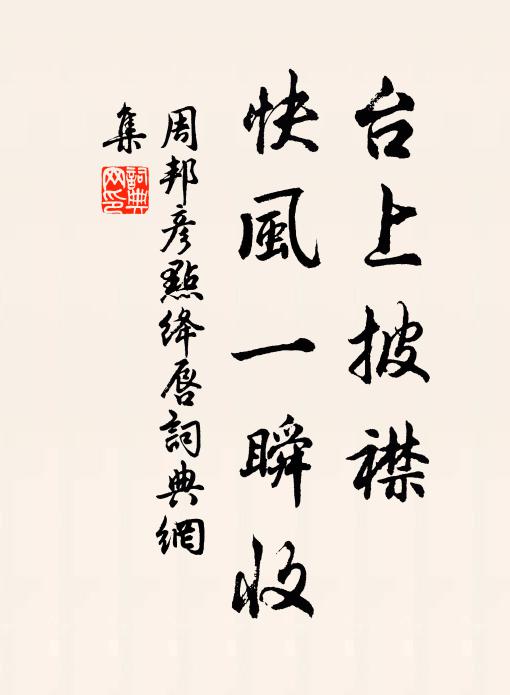 台上披襟
快風一瞬收
周邦彥點絳唇詞典網
集
詞典網印